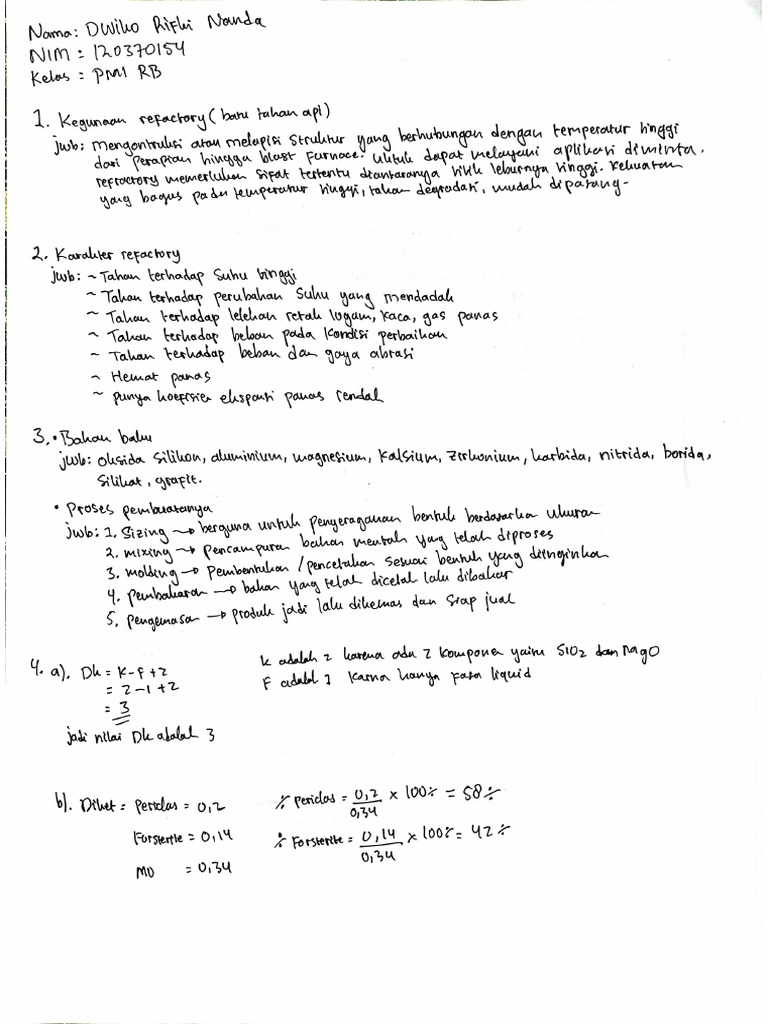 Nama: Dwiko Rifki Nanda
NIM : 120370154
Kelas : PMI RB
1. Kegunaan refactory (batu tahan api)
jwb: Mengontruksi atau melapisi struktur yang berhubungan dengan temperatur tinggi
dari perapian hingga blast furnace. Untuk dapat melayani aplikasi diminta.
refractory memerlukan sifat tertentu diantaranya titik leburnya tinggi. Kekuatan
yang bagus pada temperatur tinggi, tahan degradasi, mudah dipasang-
2. Karakter refactory
jwb: ~ Tahan terhadap suhu tinggi
~ Tahan terhadap perubahan suhu yang mendadak
~ Tahan terhadap lelehan retak logam, kaca, gas panas
~ Tahan terhadap beban pada kondisi perbaikan
~ Tahan terhadap beban dan gaya abrasi
~ Hemat panas
~ punya koefisien ekspansi panas rendah
3. • Bahan baku
jwb: oksida silikon, aluminium, magnesium, kalsium, zirkonium, karbida, nitrida, borida,
silikat, grafit.
• Proses pembuatanya
jwb: 1. Sizing → berguna untuk penyeragaman bentuk berdasarkan ukuran
2. mixing → pencampuran bahan mentah yang telah diproses
3. molding → Pembentukan / pencetakan sesuai bentuk yang diinginkan
4. pembakaran → bahan yang telah dicetak lalu dibakar
5. pengemasan → produk jadi lalu dikemas dan siap jual
4. a). Dk = K-F+2
= 2-1+2
= 3
jadi nilai Dk adalah 3
k adalah 2 karena ada 2 komponen yaitu SiO2 dan MgO
F adalah 1 karna hanya fasa liquid
b). Diket = periclas = 0,2
Forsterite = 0,14
MO = 0,34
% periclas = 0,2/0,34 × 100% = 58%
% Forsterite = 0,14/0,34 × 100% = 42%